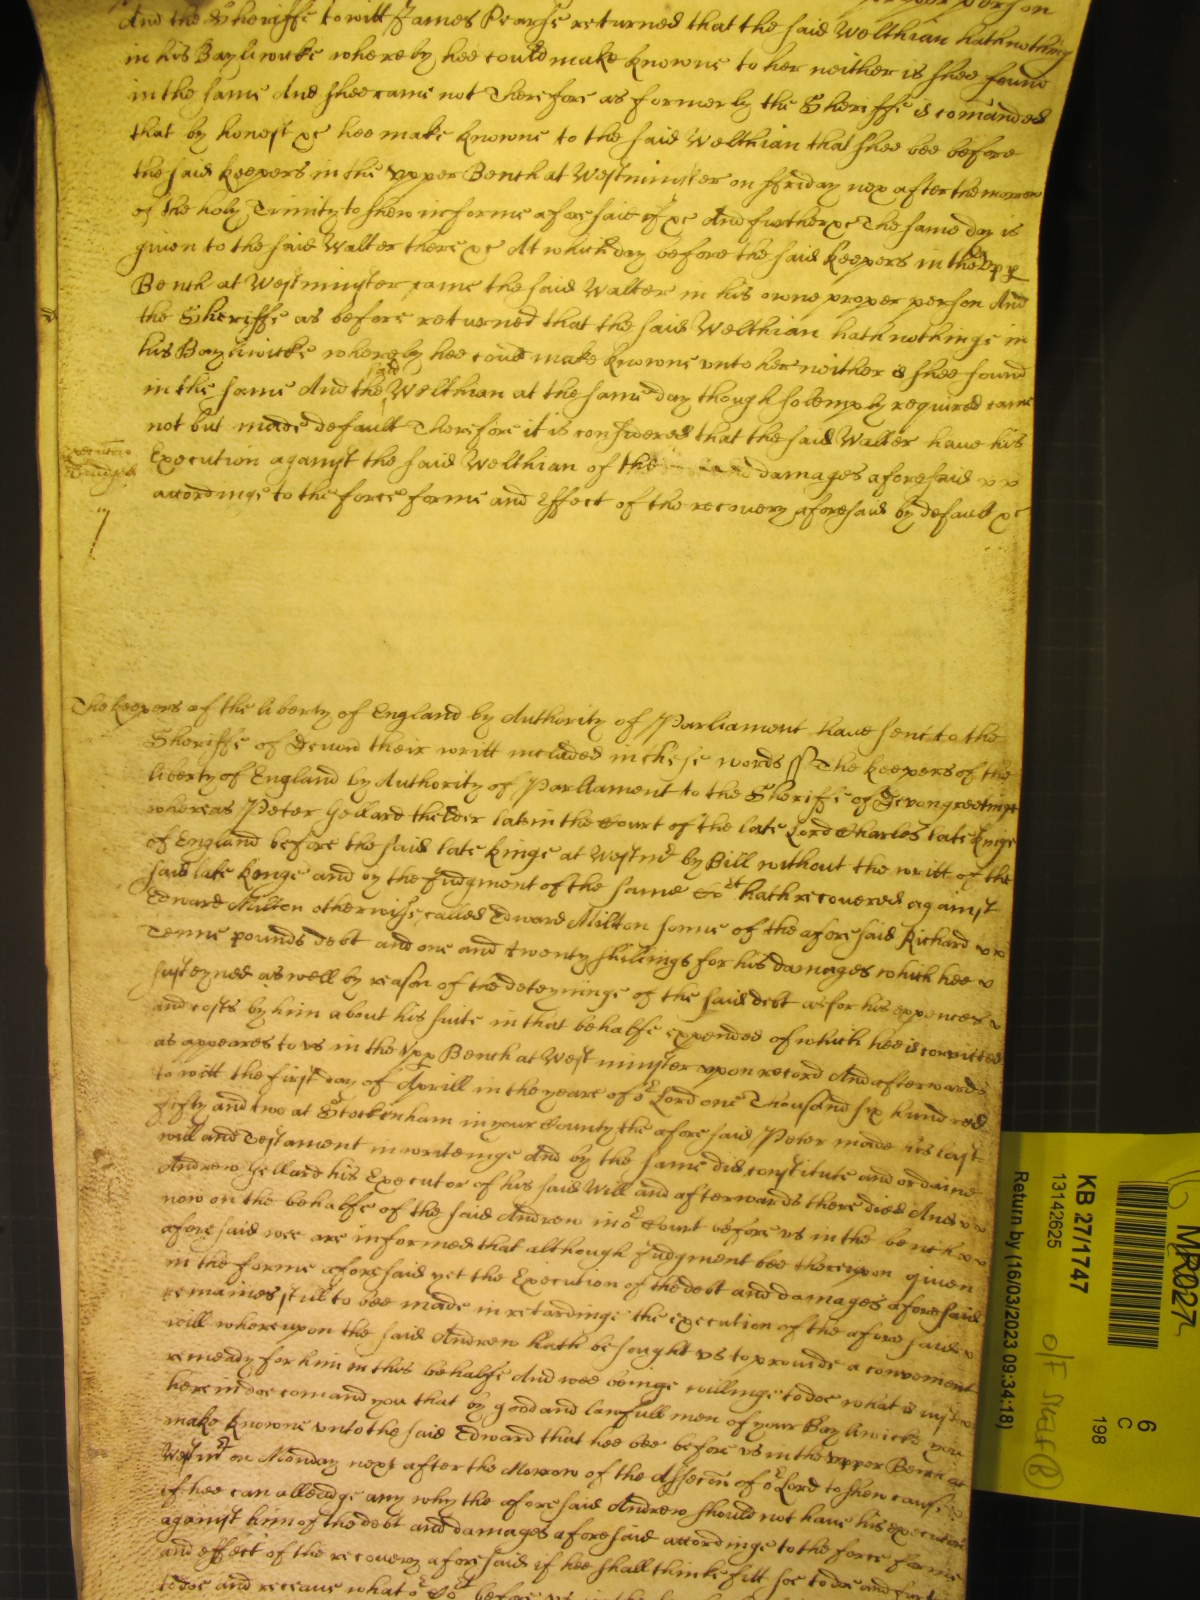 person
And the Sheriffe to witt James Pearse returned that the said Welthian hath nothing
in his Bayliwicke whereby hee could make knowne to her neither is shee found
in the same And shee came not Therefore as formerly the Sheriffe is comanded
that by honest &c hee make knowne to the said Welthian that shee bee before
the said keepers in the vpper Bench at Westminster on ffriday nex after the morrow
of the holy Trinity to shew in forme aforesaid if &c And further &c The same day is
given to the said Walter there &c At which day before the said keepers in the vpp
Bench at Westminster came the said Walter in his owne proper person And
the Sheriffe as before returned that the said Welthian hath nothinge in
his Bayliwicke whereby hee coud make knowne vnto her neither is shee found
in the same And the said Welthian at the same day though solemply required came
not but made default Therefore it is considered that the said Walter have his
Execution against the said Welthian of the damages aforesaid
accordinge to the force forme and Effect of the recovery aforesaid by default &c
The keepers of the liberty of England by Authority of Parliament have sent to the
Sheriffe of Devon their writt included in these words ss The keepers of the
liberty of England by Authority of Parliament to the Sheriffe of Devon greetinge
whereas Peter Gellard thelder late in the Court of the late Lord Charles late Kinge
of England before the said late Kinge at Westmr by Bill without the writt of the
said late Kinge and by the Judgment of the same Cort hath recovered against
Edward Milton otherwise called Edward Milton sonne of the aforesaid Richard
Tenne pounds debt and one and twenty shillings for his damages which hee
susteyned as well by reason of the deteyninge of the said debt as for his expences
and costs by him about his suite in that behalfe expended of which hee is convicted
as appeares to vs in the Vpp Bench at Westminster vpon record And afterwards
to witt the first day of Aprill in the yeare of or Lord one Thousand six hundred
fifty and two at Stockenham in your County the aforesaid Peter made his last
will and Testament in writeinge And by the same did constitute and ordaine
Andrew Gellard his Executor of his said Will and afterwards there died And
now on the behalfe of the said Andrew in or Court before vs in the bench
aforesaid wee are informed that although Judgment bee thereupon given
in the forme aforesaid yet the Execution of the debt and damages aforesaid
remaines still to bee made in retardinge the execution of the aforesaid
will whereupon the said Andrew hath besought vs to provide a convenient
remeady for him in this behalfe And wee beinge willinge to doe what is iust
herein doe comand you that by good and lawfull men of your Bayliwicke you
make knowne vnto the said Edward that hee bee before vs in the vpper Bench at
Westmr on Monday next after the Morrow of the Assecon of or Lord to shew cause
if hee can alleadge any why the aforesaid Andrew should not have his execution
against him of the debt and damages aforesaid accordinge to the force forme
and effect of the recovery aforesaid if hee shall thinke fitt soe to doe and further
to doe and receaue what or Cort before vs in the
MR027
KB 27/1747
13142625
Return by (16/03/2023 09:34:18)
6
C
198